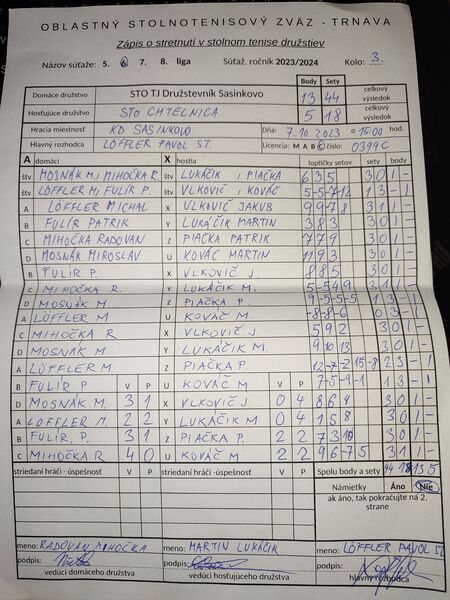 OBLASTNÝ STOLNOTENISOVÝ ZVÄZ - TRNAVA
Zápis o stretnutí v stolnom tenise družstiev
Názov súťaže: 5. 6 7. 8. liga Súťaž. ročník 2023/2024 Kolo: 3
Body Sety
Domáce družstvo STO TJ Družstevník Sasinkovo 13 44 celkový výsledok
Hosťujúce družstvo STO CHTELNICA 5 18 celkový výsledok
Hracia miestnosť KD SASINKOVO Dňa: 7.10.2023 o 15:00 hod.
Hlavný rozhodca LÖFFLER PAVOL ST. Licencia: M A B C číslo: 0399C
A domáci X hostia loptičky setov sety body
štv MOSNÁK M, MIHOČKA R. štv LUKÁČIK, PIAČKA 6 3 5 3 0 1 -
štv LÖFFLER M, FULÍR P. štv VLKOVIČ, KOVÁČ 5 -5 -7 -12 1 3 - 1
A LÖFFLER MICHAL X VLKOVIČ JAKUB 9 9 -7 8 3 1 1 -
B FULÍR PATRIK Y LUKÁČIK MARTIN 3 8 3 3 0 1 -
C MIHOČKA RADOVAN Z PIAČKA PATRIK 7 7 9 3 0 1 -
D MOSNÁK MIROSLAV U KOVÁČ MARTIN 11 9 3 3 0 1 -
B FULÍR P. X VLKOVIČ J. 8 8 5 3 0 1 -
C MIHOČKA R. Y LUKÁČIK M. 5 -5 4 9 3 1 1 -
D MOSNÁK M Z PIAČKA P. 9 -5 -5 -5 1 3 - 1
A LÖFFLER M U KOVÁČ M -8 -8 -6 0 3 - 1
C MIHOČKA R X VLKOVIČ J 5 9 2 3 0 1 -
D MOSNÁK M. Y LUKÁČIK M. 9 10 13 3 0 1 -
A LÖFFLER M Z PIAČKA P 12 -7 -2 15 -8 2 3 - 1
B FULÍR P V P U KOVÁČ M V P 7 -5 -9 -1 1 3 - 1
D MOSNÁK M 3 1 X VLKOVIČ J 0 4 8 6 9 3 0 1 -
A LÖFFLER M 2 2 Y LUKÁČIK M 0 4 1 5 8 3 0 1 -
B FULÍR, P. 3 1 Z PIAČKA P 2 2 7 3 10 3 0 1 -
C MIHOČKA R 4 0 U KOVÁČ M 2 2 9 6 -7 5 3 1 1 -
striedaní hráči - úspešnosť V P striedaní hráči - úspešnosť V P Spolu body a sety 44 18 13 5
Námietky Áno Nie
ak áno, tak pokračujte na 2. strane
meno: RADOVAN MIHOČKA meno: MARTIN LUKÁČIK meno: LÖFFLER PAVOL ST
podpis: podpis: podpis:
vedúci domáceho družstva vedúci hosťujúceho družstva hlavný rozhodca